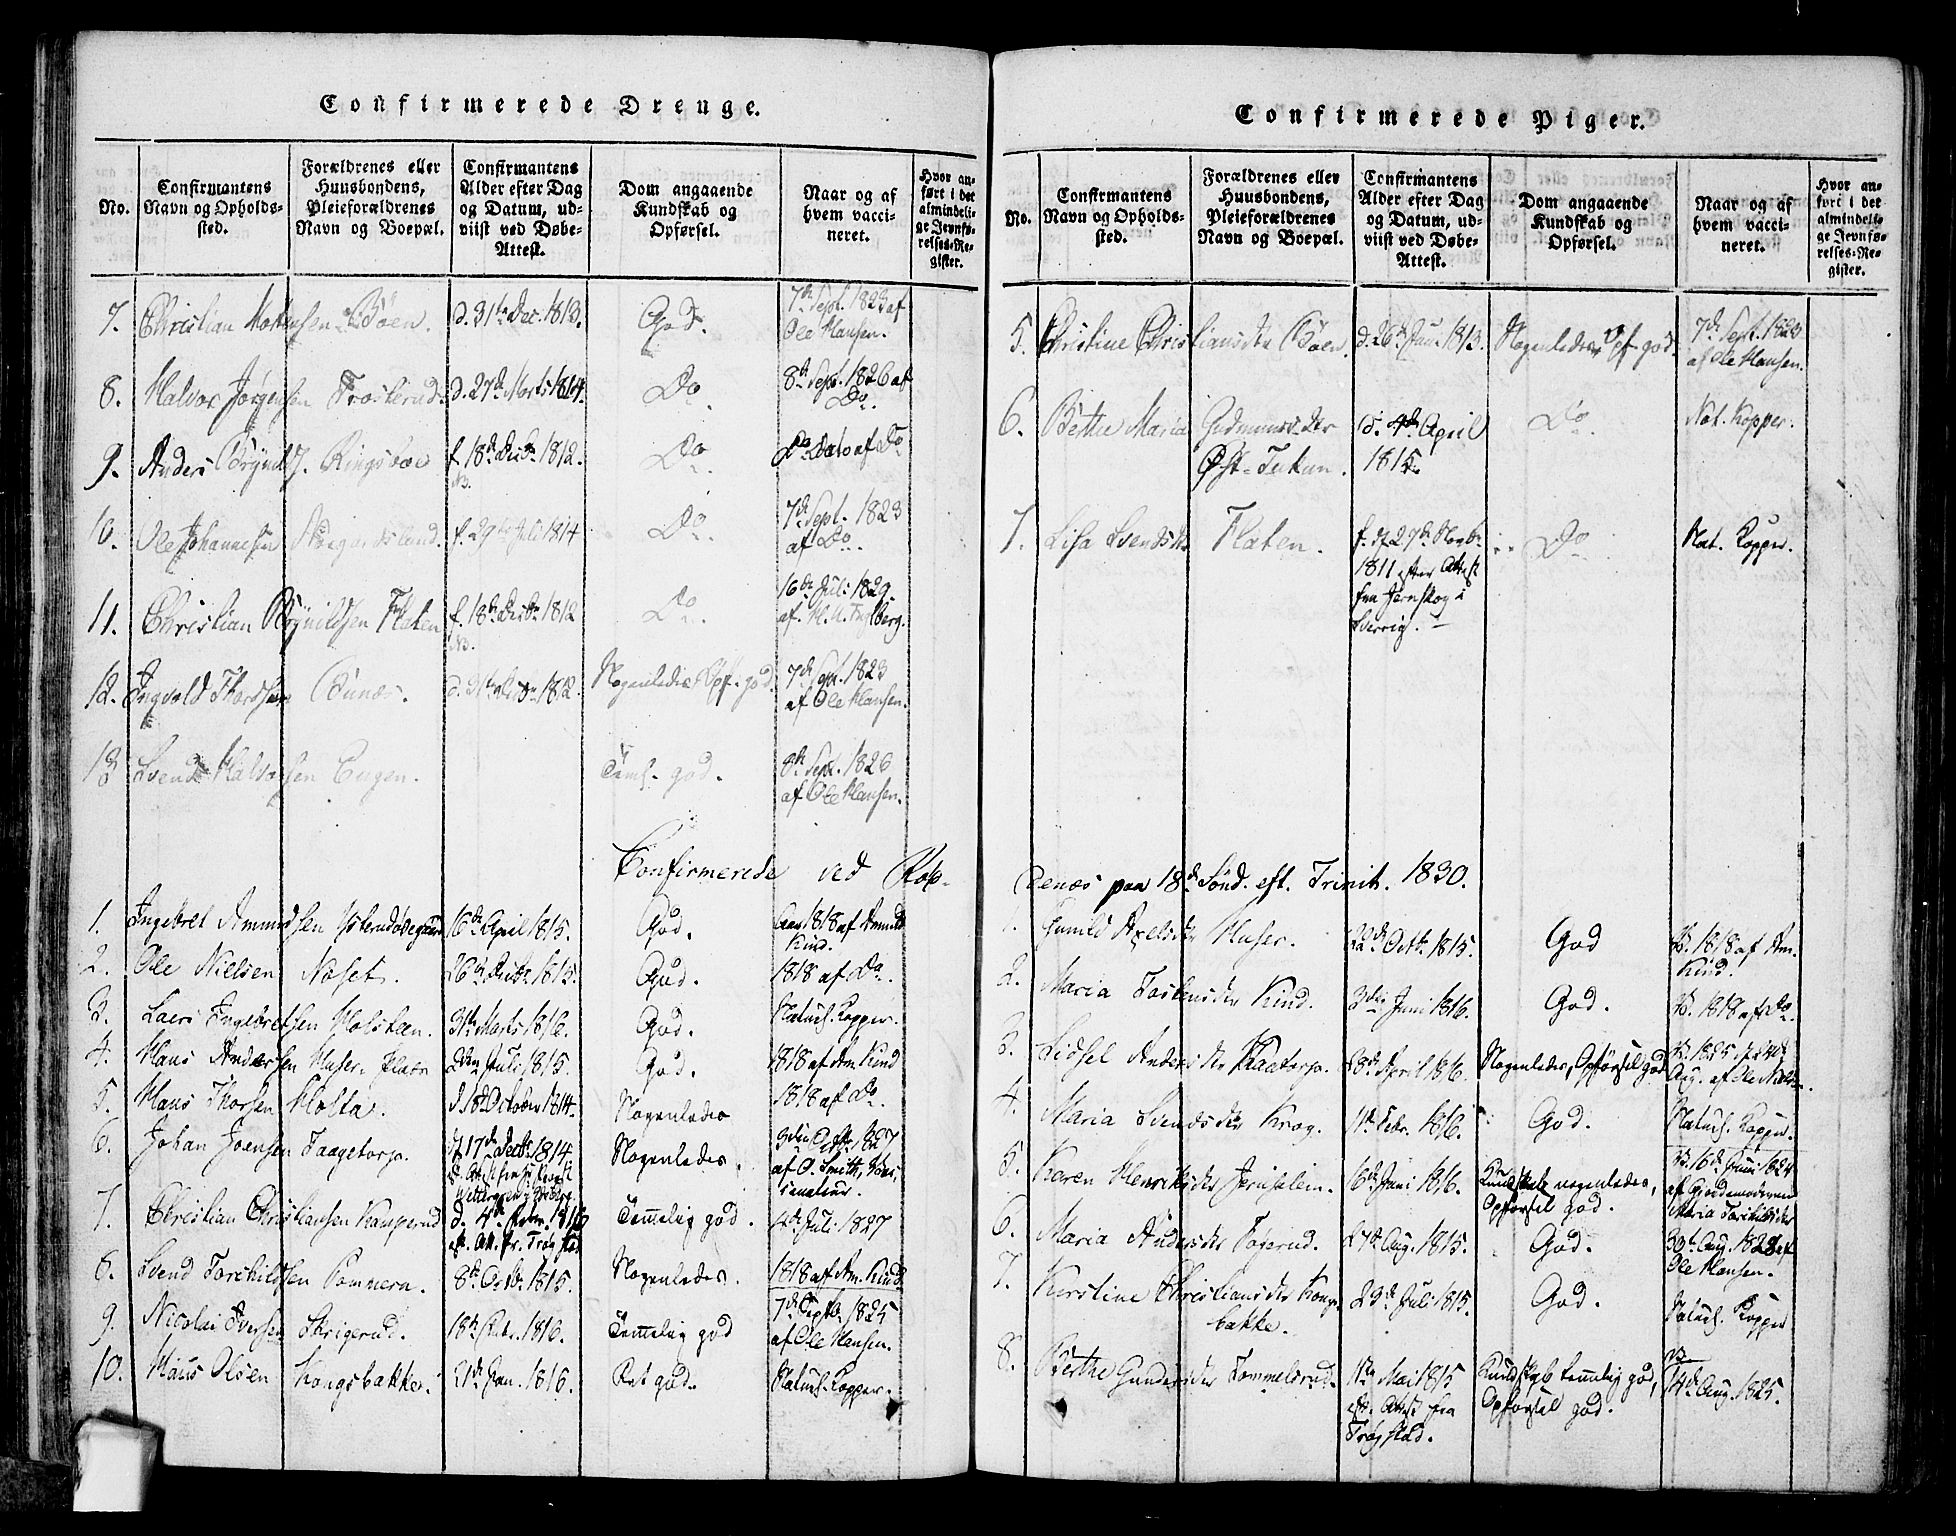 Confirmerede Drenge.
No.
Confirmantens
Navn og Opholds-
sted.
Forældrenes eller
Huusbondens,
Pleieforældrenes
Navn og Boepæl.
Confirmantens
Alder efter Dag
og Datum, ud-
viist ved Døbe-
Attest.
Dom angaaende
Kundskab og
Opførsel.
Naar og af
hvem vacci-
neret.
Hvor an-
ført i det
almindeli-
ge Jevnfø-
relses-Re-
gister.
7. Christian Mortensen Böen. d. 31te Dec. 1813. God. 7de Sept. 1823 af
Ole Hansen.
8. Halvor Jørgensen Trosterud d. 27de Marts 1814. Do. 8de Sept. 1826 af
Do.
9. Anders Ringsboe f. 18de Decbr 1812. Do. Do Dato af Do
10. Ole Johannesen f. 29de Juli 1814 Do. 7de Sept. 1823
af Do.
11. Christian Brynildsen Flaten f. 18de Decbr 1812 Do. 16de Juli 1829.
12. Ingvold Thordsen Bunæs. d. 31te 1812. Nogenledes, Opf. god. 7de Sept. 1823
af Ole Hansen.
13 Svend Halvorsen Engen. Teml. god. 8de Sept. 1826
af Ole Hansen.
Confirmerede ved Røe-
1. Ingebret Amundsen 16de April 1815. God. 1818 af Amund
Kind.
2. Ole Nielsen Noset. 26de 1815. God. 1818 af Do.
3. Laers Ingebretsen Holsteen. 31te Marts 1816. God. Naturl. Kopper.
4. Hans Andersen Huser 22de Juli 1815. God. 1818 af Am. Kind
5. Hans Thorsen Molta. d. 18de October 1814. Nogenledes 1818 af Do.
6. Johan Joensen Taagetorp. f. 17de Decbr 1814 Nogenledes. 1827
af O. Smith,
7. Christian Christiansen Kamperud d. 4de 1816 Temelig god. 4de Juli 1827
eft. Att. fr. Trøgstad
8. Svend Torchildsen Pommern. 8de Octb. 1815. Nogenledes. 1818 af Am. Kind
9. Nicolai Iversen Skrigerud. 18de 1816. Temelig god 7de Septb. 1825
af Ole Hansen.
10. Hans Olsen Kongsbakke. 21de Jan. 1816. Ret god. Naturl. Kopper.
Confirmerede Piger.
No.
Confirmantens
Navn og Opholds-
sted.
Forældrenes eller
Huusbondens,
Pleieforældrenes
Navn og Boepæl.
Confirmantens
Alder efter Dag
og Datum, ud-
viist ved Døbe-
Attest.
Dom angaaende
Kundskab og
Opførsel.
Naar og af
hvem vacci-
neret.
Hvor an-
ført i det
almindeli-
ge Jevnfø-
relses-Re-
gister.
5. Christine Christiansdtr Böen. d. 26de Jan. 1813. Nogenledes Opf. god. 7de Sept. 1823
af Ole Hansen.
6. Bethe Maria Gudmunsdtr d. 4de April Do. Nat. Kopper.
Øst-Tukun. 1815
7. Lisa Svendsdtr Flaten. f. d. 27de Novbr Do Nat. Kopper.
1811 efter Attest
fra Jernskog i
Sverrig.
denæs paa 18de Sönd. eft. Trinit. 1830.
1. Gunild Axelsdtr Huser. 22de Octb. 1815. God V. 1818 af Am.
Kind.
2. Maria Tostensdtr Kind. 3die Juni 1816. God. V. 1818 af Do.
3. Sidsel Andersdtr Kaatorp. 28de April 1816. Nogenledes, Opførsel god V. 1825 d. 24de
Aug. af Ole
4. Maria Svendsdtr Krog. 11te Febr. 1816. God. Naturl. Kopper.
5. Karen Henriksdtr Jerusalem. 16de Juni 1816. Kundskab nogenledes, V. 16de Juni 1824
Opførsel god. af Giordemoderen
Maria Torchildsdtr
6. Maria Andersdtr Togerud. 27de Aug. 1815. God. 30te Aug. 1822 af
Ole Hansen.
7. Kirstine Christiansdtr Kongs- 23de Juli 1815. God. Naturl. Kopper
bakke.
8. Berthe Gundersdtr Tommelsrud. 1ste Mai 1815 Kundskab temelig god, V.
eft. Attest fra Opførsel god. 14de Aug. 1825.
Trøgstad.